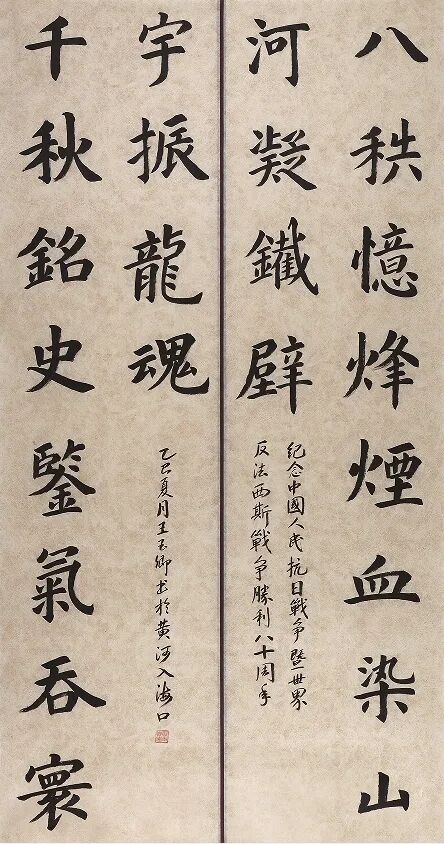 八秩憶烽煙血染山
河凝鐵壁
纪念中國人民抗日戰争暨世界
反法西斯戰争勝利八十周年
千秋銘史鋻氣吞寰
宇振龍魂
乙巳夏月王玉卿书於黄河入海口